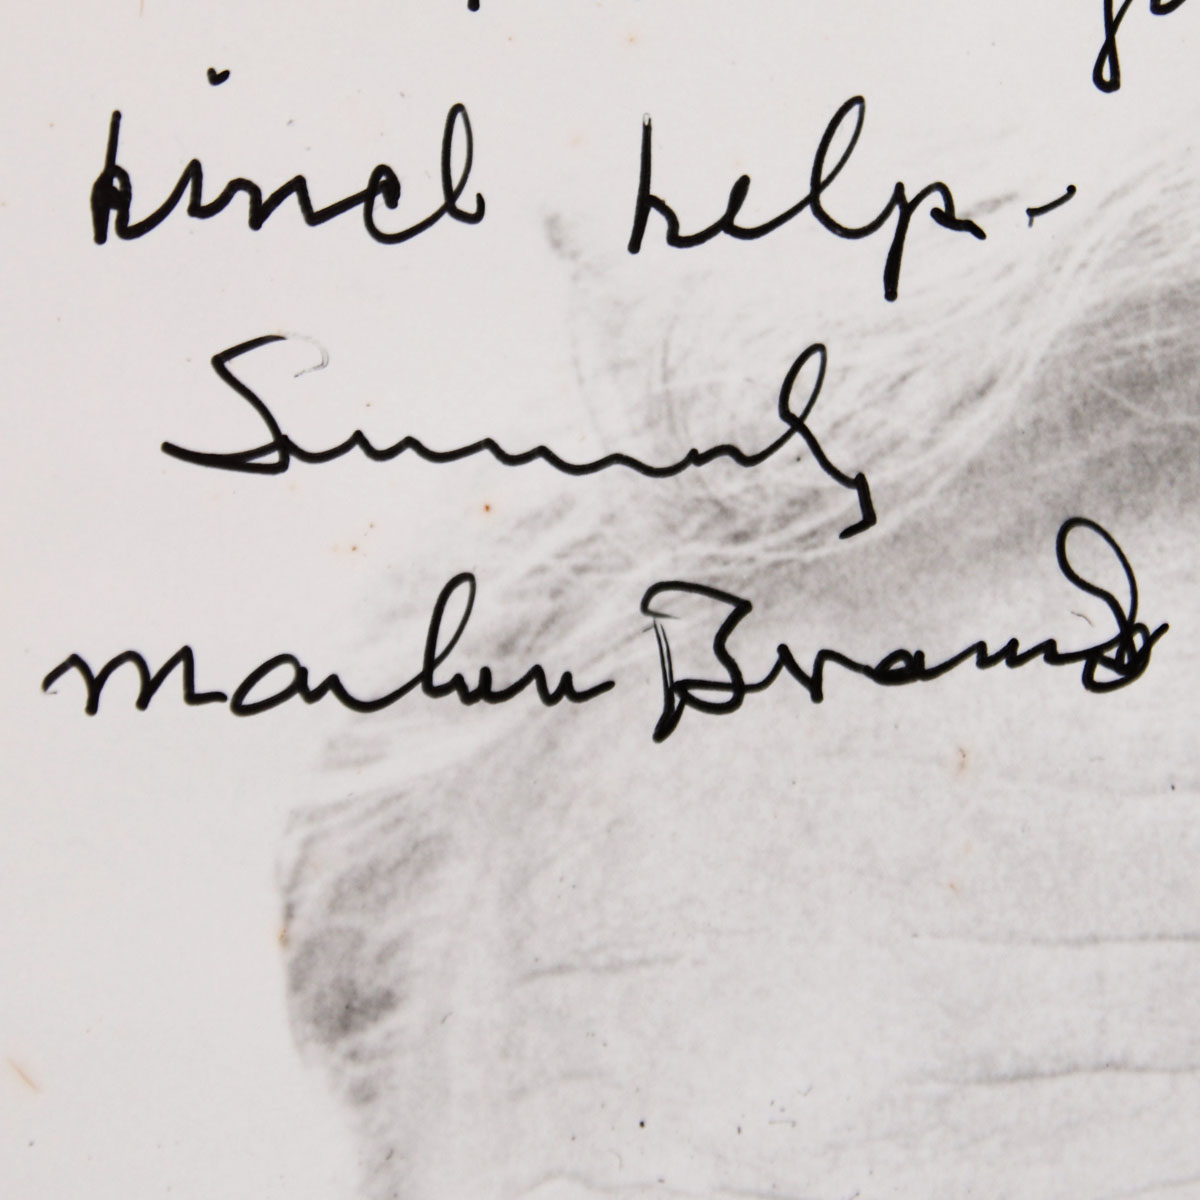 kind help.
Sincerely
Marlon Brando